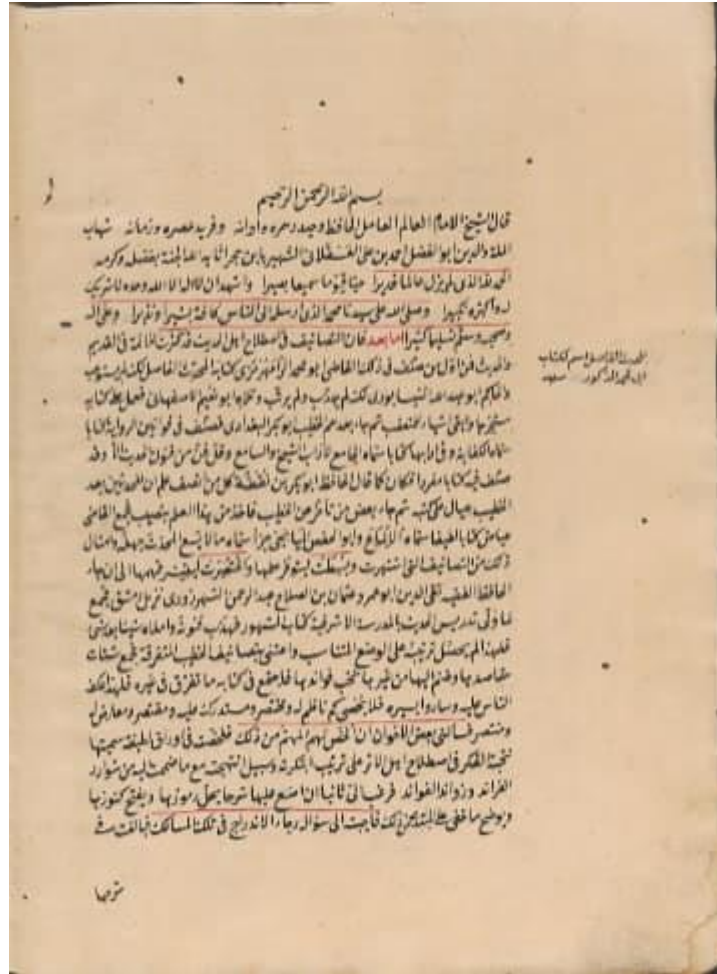 بسم الله الرحمن الرحيم
قال الشيخ الامام العالم العامل الحافظ وحيد دهره واوانه وفريد عصره وزمانه شهاب
الملة والدين ابو الفضل احمد بن على العسقلانى الشهير بابن حجر اثابه الله الجنة بفضله وكرمه
الحمد لله الذى لم يزل عالما قديرا حيا قيوما سميعا بصيرا واشهد ان لا اله الا الله وحده لا شريك
له واكبره تكبيرا وصلى الله على سيدنا محمد الذى ارسله الى الناس كافة بشيرا ونذيرا وعلى ال
وصحبه وسلم تسليما كثيرا اما بعد فان التصانيف فى اصطلاح اهل الحديث قد كثرت للائمة فى القديم
والحديث فمن اول من صنف فى ذلك القاضى ابو محمد الرامهرمزى كتابه المحدث الفاصل لكنه لم يستوعب
والحاكم ابو عبد الله النيسابورى لكنه لم يهذب ولم يرتب وتلاه ابو نعيم الاصفهانى فعمل على كتابه
مستخرجا وابقى اشياء للمتعقب ثم جاء بعدهم الخطيب ابو بكر البغدادى فصنف فى قوانين الرواية كتابا
سماه الكفاية وفى ادابها كتابا سماه الجامع لاداب الشيخ والسامع وقل فن من فنون الحديث الا وقد
صنف فيه كتابا مفردا فكان كما قال الحافظ ابو بكر بن نقطة كل من انصف علم ان المحدثين بعد
الخطيب عيال على كتبه ثم جاء بعض من تأخر عن الخطيب فاخذ من هذا العلم بنصيب فجمع القاضى
عياض كتابا لطيفا سماه الالماع وابو حفص الميانجى جزأ سماه ما لا يسع المحدث جهله وامثال
ذلك من التصانيف التى اشتهرت وبسطت ليتوفر علمها واختصرت ليتيسر فهمها الى ان جاء
الحافظ الفقيه تقى الدين ابو عمرو عثمان بن الصلاح عبد الرحمن الشهرزورى نزيل دمشق فجمع
لما ولى تدريس الحديث بالمدرسة الاشرفية كتابه المشهور فهذب فنونه واملاه شيئا بعد شئ
فلهذا لم يحصل ترتيبه على الوضع المتناسب واعتنى بتصانيف الخطيب المتفرقة فجمع شتات
مقاصدها وضم اليها من غيرها نخب فوائدها فاجتمع فى كتابه ما تفرق فى غيره فلهذا عكف
الناس عليه وساروا بسيره فلا يحصى كم ناظم له ومختصر ومستدرك عليه ومقتصر ومعارض له
ومنتصر فسألنى بعض الاخوان ان الخص لهم المهم من ذلك فلخصت فى اوراق لطيفة سميتها
نخبة الفكر فى اصطلاح اهل الاثر على ترتيب ابتكرته وسبيل انتهجته مع ما ضممت اليه من شوارد
الفرائد وزوائد الفوائد فرغب الى ثانيا ان اضع عليها شرحا يحل رموزها ويفتح كنوزها
ويوضح ما خفى على المبتدى من ذلك فاجبت الى سؤاله رجاء الاندراج فى تلك المسالك فبالغت فى
شرحها
المحدث الفاصل اسم لكتاب
ابى محمد المذكور